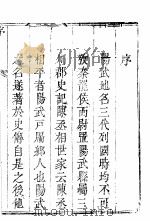 序
陽武地名三代列國時均不可
攷秦龍俟而尉置陽武縣屬三
川郡史記陳丞相世家云陳丞
相平者陽武戶牖鄉人也陽武
之名遂著於史傳自是之後德